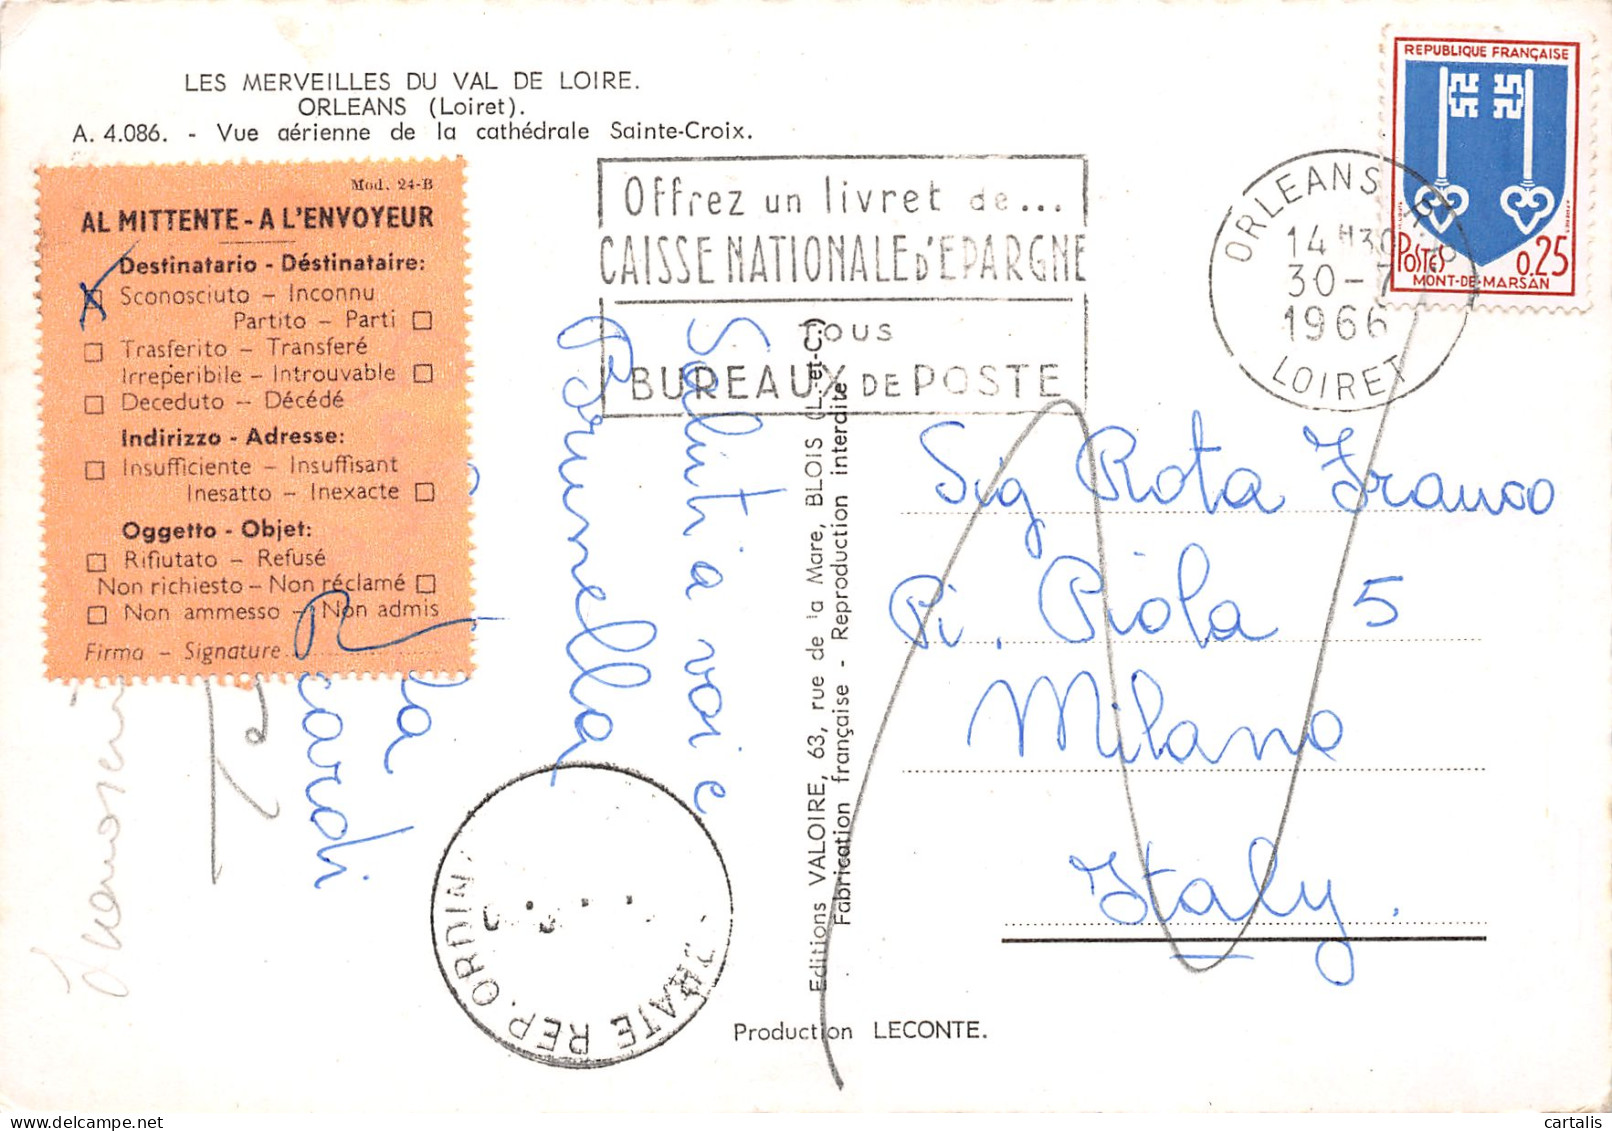 LES MERVEILLES DU VAL DE LOIRE.
ORLEANS (Loiret).
A. 4.086. - Vue aérienne de la cathédrale Sainte-Croix.
Mod. 24-B
AL MITTENTE - A L'ENVOYEUR
Destinatario - Déstinataire:
Sconosciuto - Inconnu
Partito - Parti
Trasferito - Transferé
Irreperibile - Introuvable
Deceduto - Décédé
Indirizzo - Adresse:
Insufficiente - Insuffisant
Inesatto - Inexacte
Oggetto - Objet:
Rifiutato - Refusé
Non richiesto - Non réclamé
Non ammesso - Non admis
Firma - Signature
Offrez un livret de...
CAISSE NATIONALE D'EPARGNE
TOUS
BUREAUX DE POSTE
ORLEANS R.P.
14 H30
30-7
1966
LOIRET
REPUBLIQUE FRANÇAISE
POSTES
0.25
MONT-DE-MARSAN
Saluti a voi e
Brunella
la
Sig Rota Franco
Pi. Piola 5
Milano
Italy.
Editions VALOIRE, 63, rue de la Mare, BLOIS (L.-et-C.)
Fabrication française - Reproduction interdite
Production LECONTE.
REP. ORDIN.